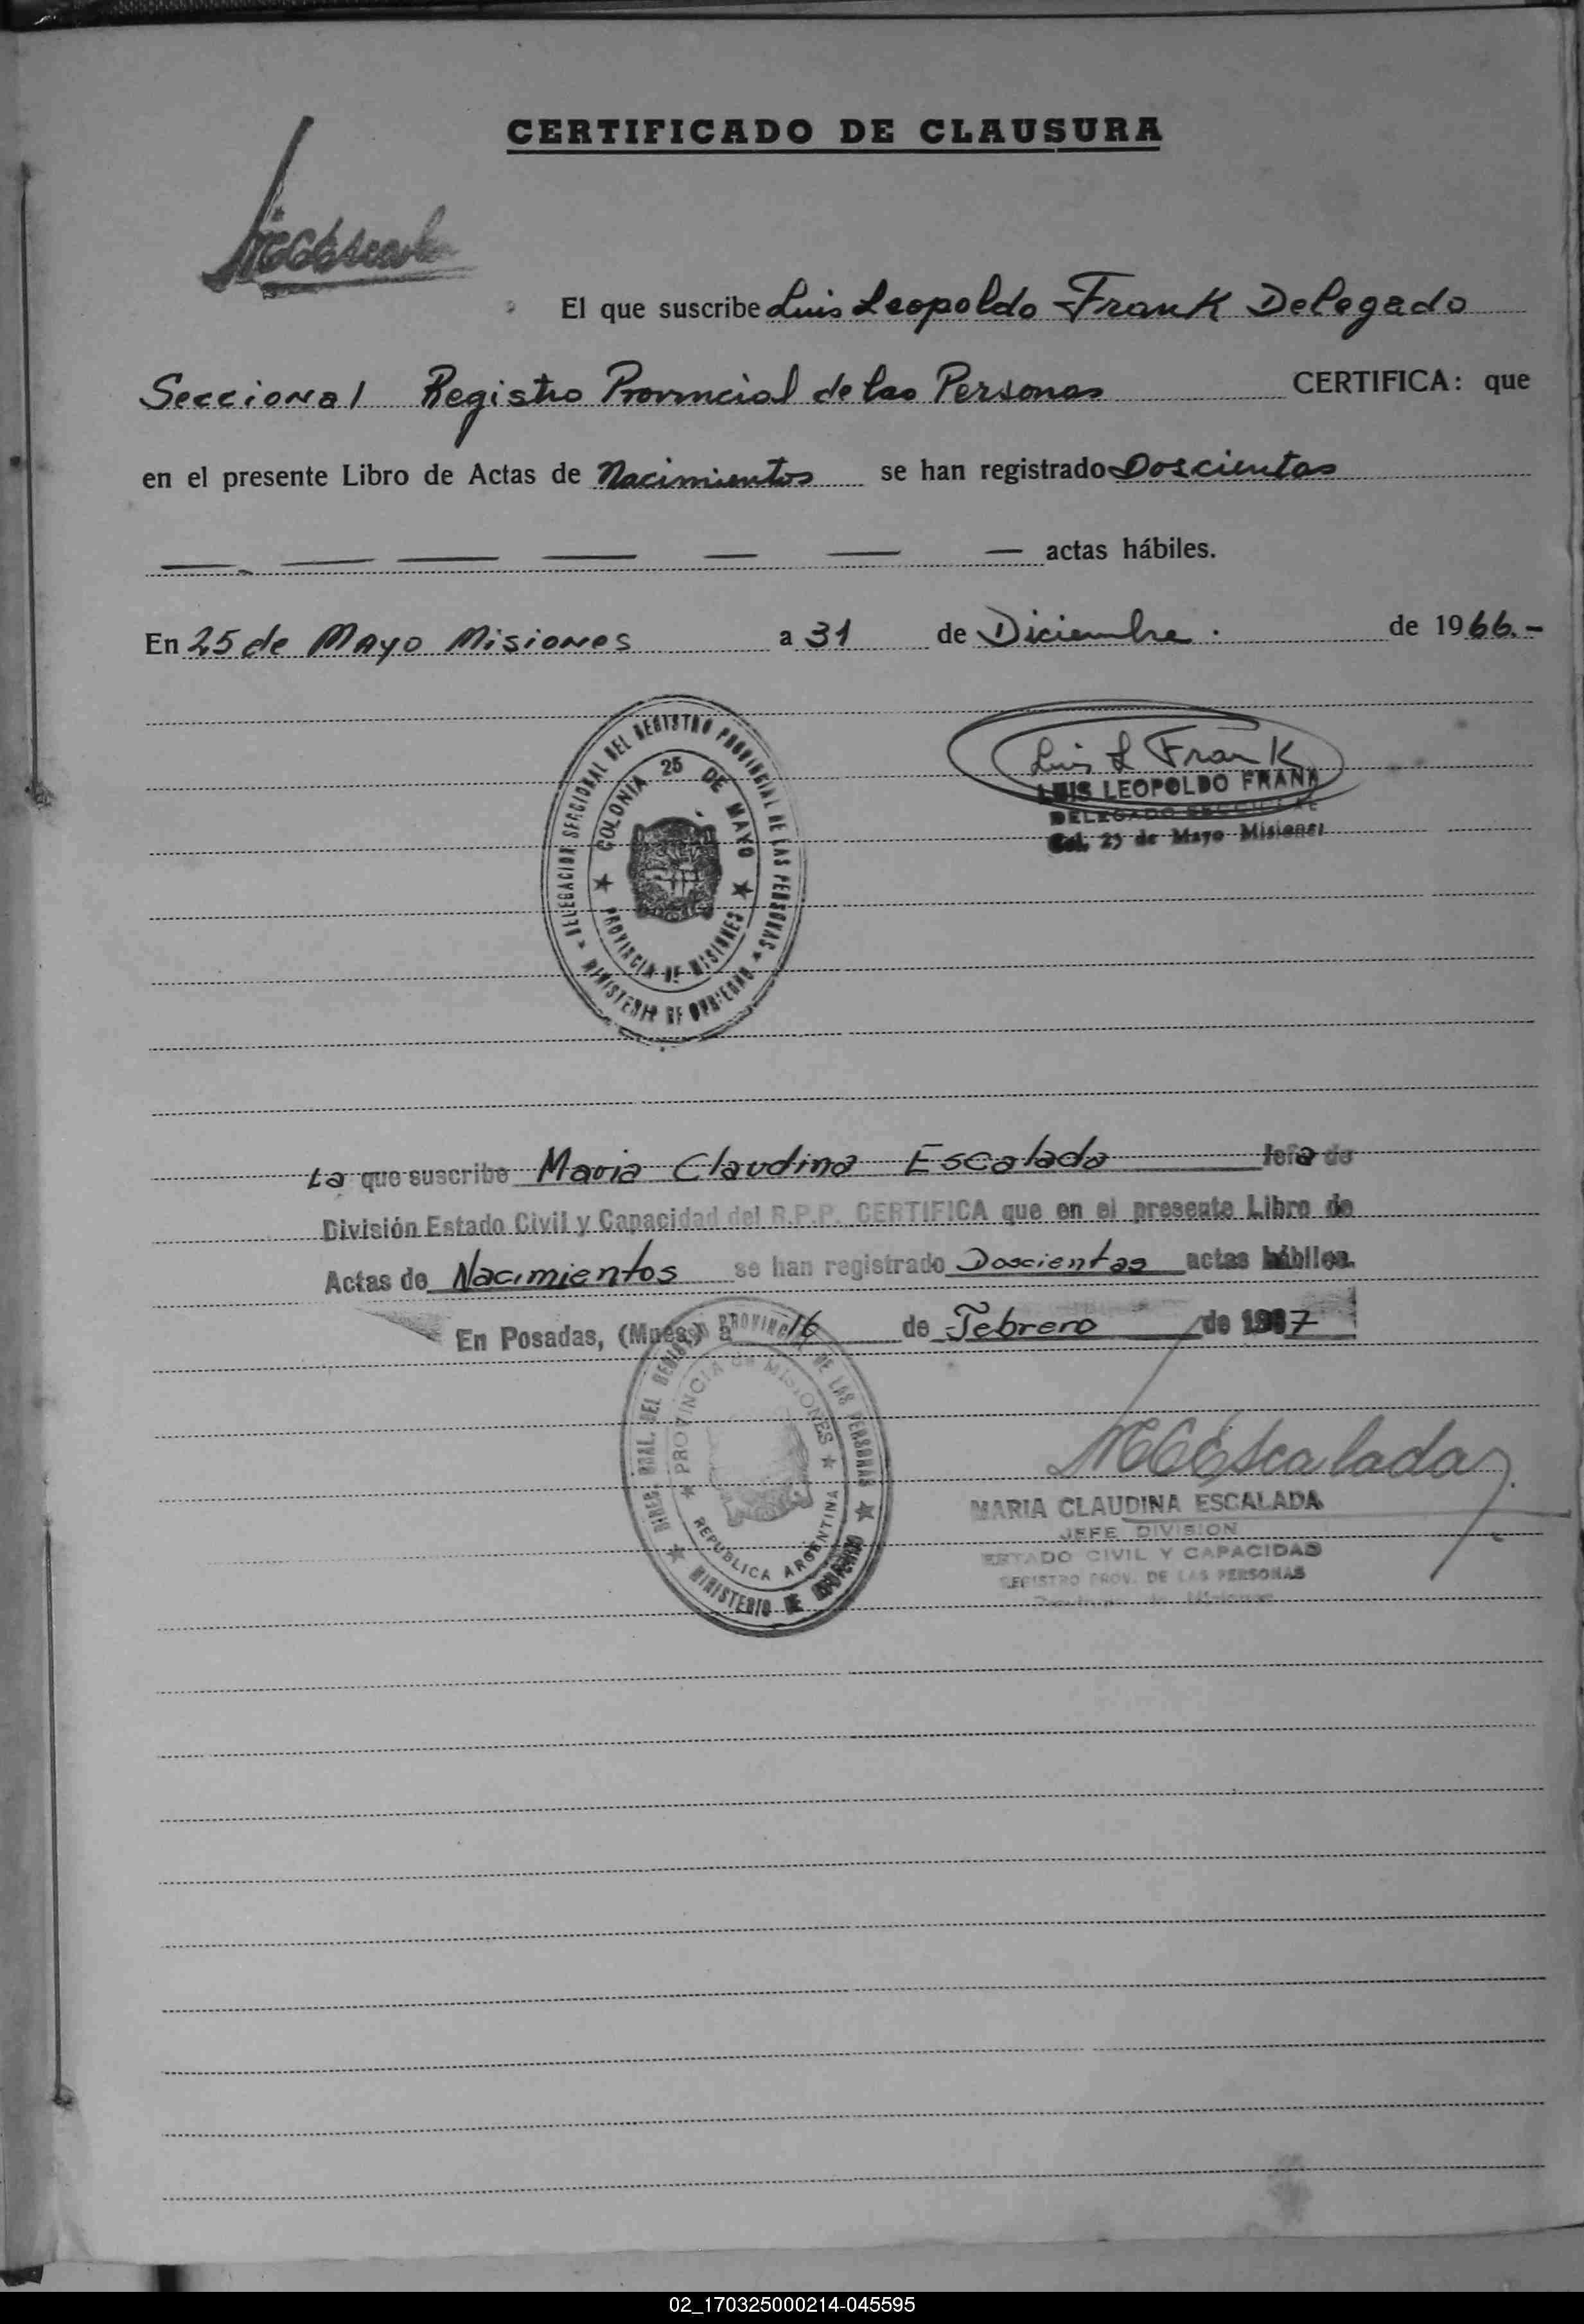 CERTIFICADO DE CLAUSURA
El que suscribe Luis Leopoldo Frank Delegado
Seccional Registro Provincial de las Personas CERTIFICA: que
en el presente Libro de Actas de Nacimientos se han registrado Doscientas
— — — — — — — actas hábiles.
En 25 de Mayo Misiones a 31 de Diciembre . de 1966.-
DELEGACION SECCIONAL DEL REGISTRO PROVINCIAL DE LAS PERSONAS
COLONIA 25 DE MAYO
PROVINCIA DE MISIONES
MINISTERIO DE GOBIERNO
Luis L Frank
LUIS LEOPOLDO FRANK
DELEGADO SECCIONAL
Col. 25 de Mayo Misiones
La que suscribe Maria Claudina Escalada Jefa de
División Estado Civil y Capacidad del R.P.P. CERTIFICA que en el presente Libro de
Actas de Nacimientos se han registrado Doscientas actas hábiles.
En Posadas, (Mnes.) a 16 de Febrero de 1967
DIREC. GRAL. DEL REGISTRO PROVINCIAL DE LAS PERSONAS
PROVINCIA de MISIONES
REPUBLICA ARGENTINA
MINISTERIO DE GOBIERNO
MCEscalada
MARIA CLAUDINA ESCALADA
JEFE DIVISION
ESTADO CIVIL Y CAPACIDAD
REGISTRO PROV. DE LAS PERSONAS
Provincia de Misiones
02_170325000214-045595